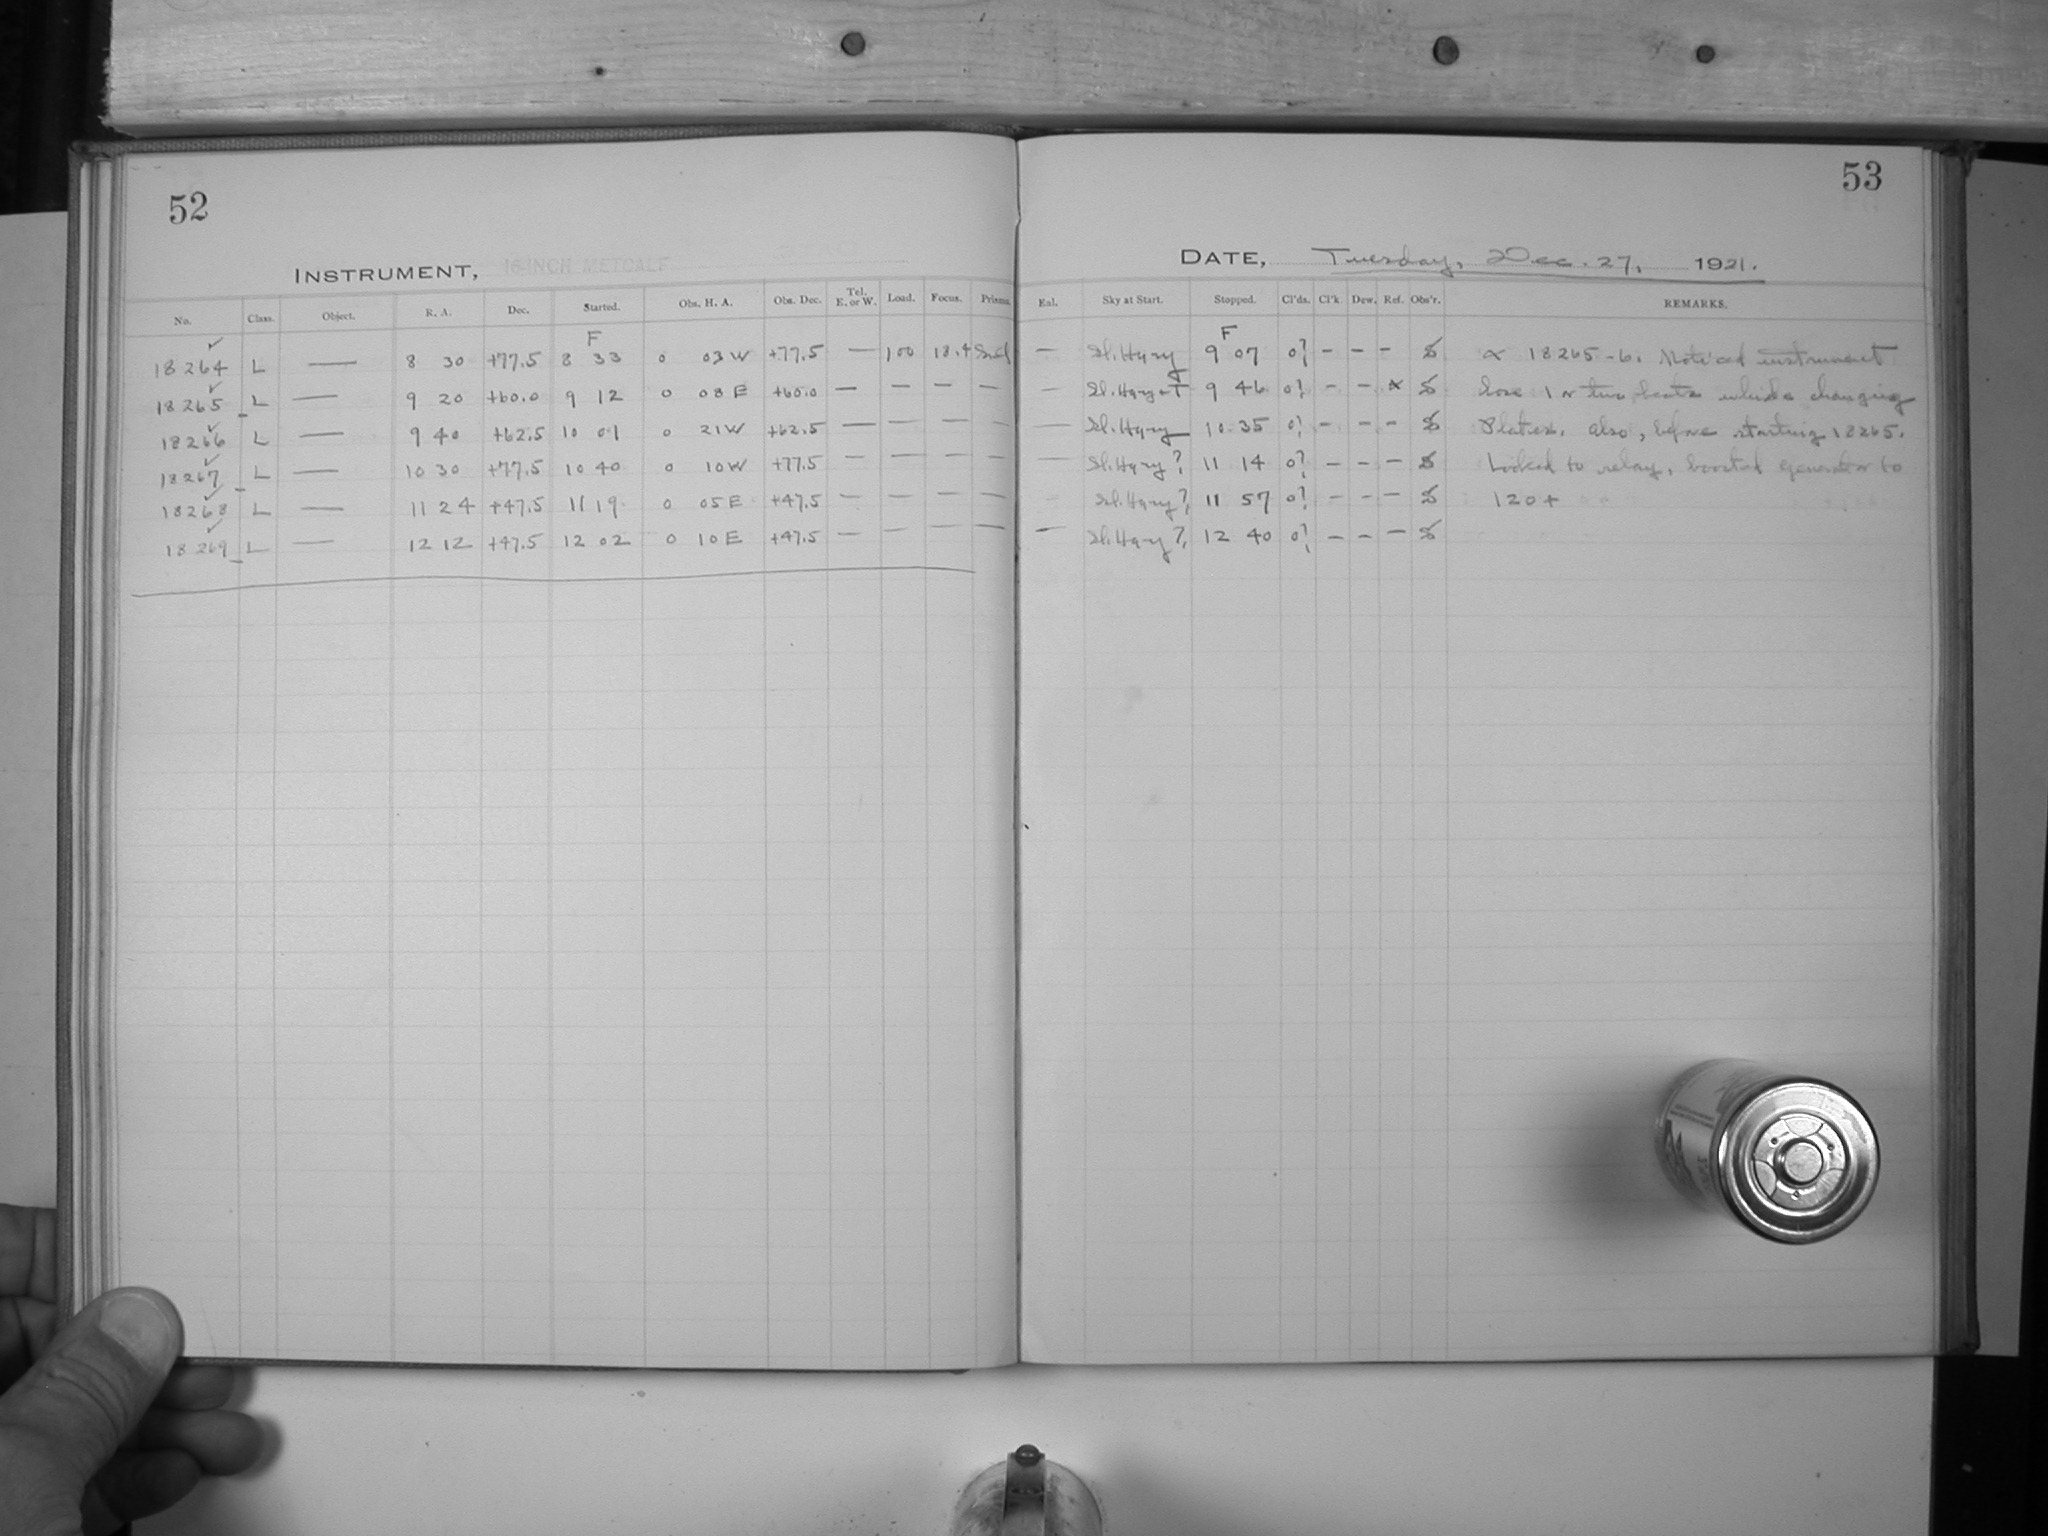 52
INSTRUMENT, 16-INCH METCALF
No. Class. Object. R. A. Dec. Started. Obs. H. A. Obs. Dec. Tel. E. or W. Load. Focus. Prisms.
F
18264 ✓ L — 8 30 +77.5 8 33 0 03 W +77.5 — 100 18.4
18265 ✓ L — 9 20 +60.0 9 12 0 08 E +60.0 — — — —
18266 ✓ L — 9 40 +62.5 10 01 0 21 W +62.5 — — — —
18267 ✓ L — 10 30 +77.5 10 40 0 10 W +77.5 — — — —
18268 ✓ L — 11 24 +47.5 11 19 0 05 E +47.5 — — — —
18269 ✓ L — 12 12 +47.5 12 02 0 10 E +47.5 — — — —
53
DATE, Tuesday, Dec. 27, 1921.
Eal. Sky at Start. Stopped. Cl'ds. Cl'k. Dew. Ref. Obs'r. REMARKS.
F
— Sl. Hazy 9 07 0? – – – S ∝ 18265-6. Noticed instrument
— Sl. Hazy + T 9 46 0? – – × S lose 1 or two beats while changing
— Sl. Hazy 10 35 0? – – – S Plates. Also, before starting 18265.
— Sl. Hazy? 11 14 0? – – – S Looked to relay, boosted generator to
— Sl. Hazy? 11 57 0? – – – S 120+
— Sl. Hazy? 12 40 0? – – – S